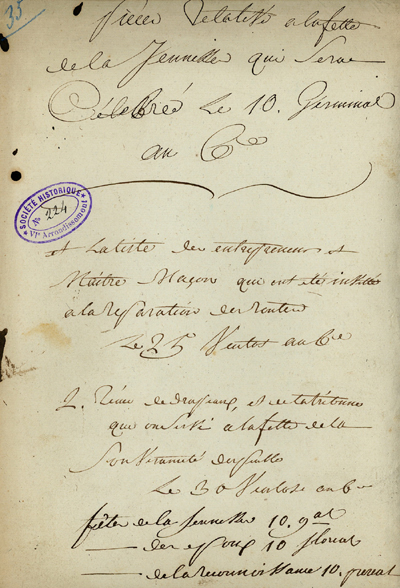 35
piéce Relative a la fette
de la Jeunesse qui Serae
Célébreé Le 10. Germinal
an 6me
SOCIÉTÉ HISTORIQUE
No 224
VIe Arrondissement
et La liste des entrepreneurs et
Maitre Maçon qui ont été invitté
a la reparation des routes
Le 25 Ventos an 6me
2. de drapeaux, et de la tribune
qui on Servi a la fette de la
Souveraineté du peuple
Le 30 Ventose an 6me
fêtes de la Jeunesse 10. gal
— des epoux 10 floreal
— de la reconnoissance 10. prereal